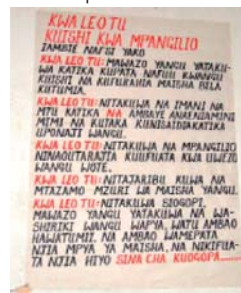 KWA LEO TU
KUISHI KWA MPANGILIO
IAMBIE NAFSI YAKO
KWA LEO TU: MAWAZO YANGU YATAKU-
WA KATIKA KUPATA NAFUU KWANGU
KUISHI NA KUFURAHIA MAISHA BILA
KUTUMIA.
KWA LEO TU: NITAKUWA NA IMANI NA
MTU KATIKA NA AMBAYE ANAENIAMINI
MIMI NA KUTAKA KUNISAIDIA KATIKA
UPONAJI WANGU.
KWA LEO TU: NITAKUWA NA MPANGILIO
NINAOUTARAJIA KUUFUATA KWA UWEZO
WANGU WOTE.
KWA LEO TU: NITAJARIBU KUWA NA
MTAZAMO MZURI WA MAISHA YANGU.
KWA LEO TU: NITAKUWA SIOGOPI.
MAWAZO YANGU YATAKUWA NA WA-
SHIRIKI WANGU WAPYA, WATU AMBAO
HAWATUMII. NA AMBAO WAMEPATA
NJIA MPYA YA MAISHA, NA NIKIFUA-
TA NJIA HIYO SINA CHA KUOGOPA